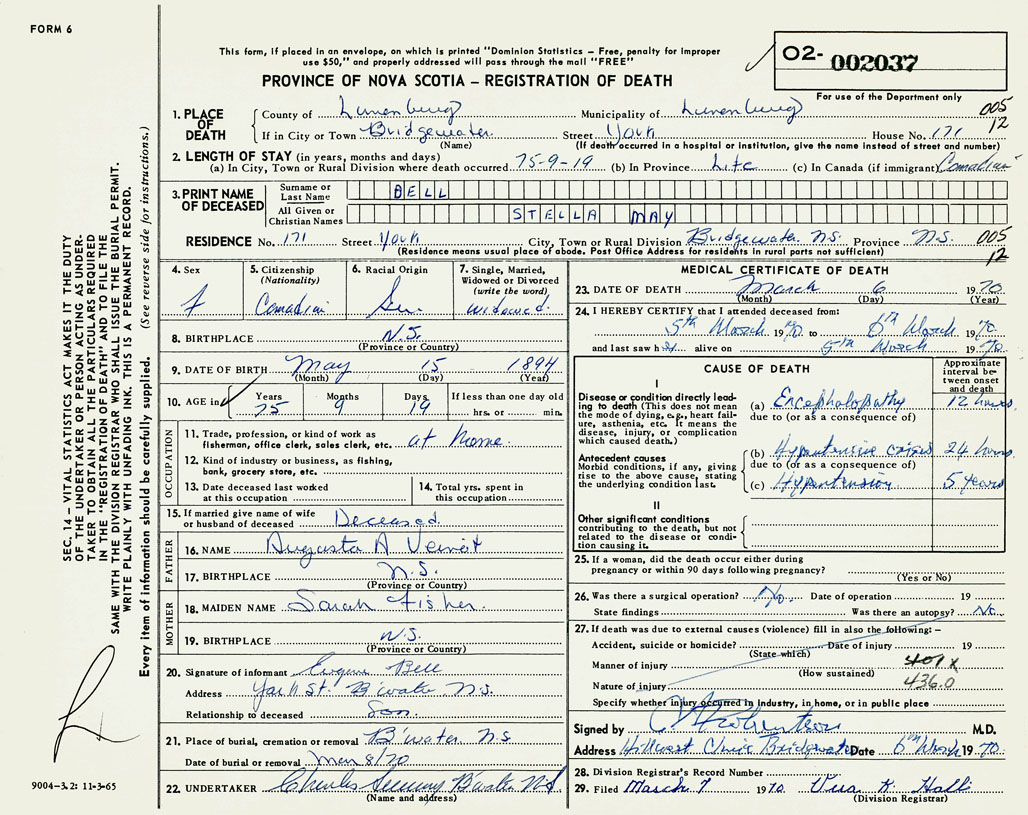 FORM 6
This form, if placed in an envelope, on which is printed "Dominion Statistics – Free, penalty for improper
use $50," and properly addressed will pass through the mail "FREE"
PROVINCE OF NOVA SCOTIA – REGISTRATION OF DEATH
O2- 002037
For use of the Department only
1. PLACE OF DEATH County of Lunenburg Municipality of Lunenburg 005
If in City or Town Bridgewater Street York House No. 171 12
(Name) (If death occurred in a hospital or institution, give the name instead of street and number)
2. LENGTH OF STAY (in years, months and days)
(a) In City, Town or Rural Division where death occurred 75-9-19 (b) In Province Life (c) In Canada (if immigrant) Canadian
3. PRINT NAME OF DECEASED Surname or Last Name BELL
All Given or Christian Names STELLA MAY
RESIDENCE No. 171 Street York City, Town or Rural Division Bridgewater N.S. Province N.S. 005
(Residence means usual place of abode. Post Office Address for residents in rural parts not sufficient) 12
4. Sex f
5. Citizenship (Nationality) Canadian
6. Racial Origin
7. Single, Married, Widowed or Divorced (write the word) widowed
8. BIRTHPLACE N.S.
(Province or Country)
9. DATE OF BIRTH May 15 1894
(Month) (Day) (Year)
10. AGE in Years 75 Months 9 Days 19 If less than one day old
hrs. or min.
OCCUPATION
11. Trade, profession, or kind of work as
fisherman, office clerk, sales clerk, etc. at home
12. Kind of industry or business, as fishing,
bank, grocery store, etc.
13. Date deceased last worked
at this occupation
14. Total yrs. spent in
this occupation
15. If married give name of wife
or husband of deceased Deceased
FATHER
16. NAME Augusta A Veinot
17. BIRTHPLACE N.S.
(Province or Country)
MOTHER
18. MAIDEN NAME Sarah Fisher
19. BIRTHPLACE N.S.
(Province or Country)
20. Signature of informant Eugene Bell
Address York St. B'water N.S.
Relationship to deceased Son
21. Place of burial, cremation or removal B'water N.S.
Date of burial or removal Mar 8/70
22. UNDERTAKER Charles B'water N.S.
(Name and address)
MEDICAL CERTIFICATE OF DEATH
23. DATE OF DEATH March 6 1970
(Month) (Day) (Year)
24. I HEREBY CERTIFY that I attended deceased from:
5th March 1970 to 6th March 1970
and last saw her alive on 5th March 1970
CAUSE OF DEATH
Approximate interval between onset and death
I
Disease or condition directly leading to death (This does not mean the mode of dying, e.g., heart failure, asthenia, etc. It means the disease, injury, or complication which caused death.)
(a) Encephalopathy 12 hours
due to (or as a consequence of)
Antecedent causes
Morbid conditions, if any, giving rise to the above cause, stating the underlying condition last.
(b) Hypertensive crisis 24 hours
due to (or as a consequence of)
(c) Hypertension 5 years
II
Other significant conditions
contributing to the death, but not related to the disease or condition causing it.
25. If a woman, did the death occur either during
pregnancy or within 90 days following pregnancy?
(Yes or No)
26. Was there a surgical operation? No Date of operation 19
State findings Was there an autopsy? No
27. If death was due to external causes (violence) fill in also the following: –
Accident, suicide or homicide? Date of injury 19
(State which)
Manner of injury 401X
(How sustained)
Nature of injury 436.0
Specify whether injury occurred in industry, in home, or in public place
Signed by M.D.
Address Hillcrest Clinic Bridgewater Date 6th March 1970
28. Division Registrar's Record Number
29. Filed March 7 1970 K. Hall
(Division Registrar)
SEC. 14 – VITAL STATISTICS ACT MAKES IT THE DUTY
OF THE UNDERTAKER OR PERSON ACTING AS UNDER-
TAKER TO OBTAIN ALL THE PARTICULARS REQUIRED
IN THE "REGISTRATION OF DEATH" AND TO FILE THE
SAME WITH THE DIVISION REGISTRAR WHO SHALL ISSUE THE BURIAL PERMIT.
WRITE PLAINLY WITH UNFADING INK. THIS IS A PERMANENT RECORD.
Every item of information should be carefully supplied. (See reverse side for instructions.)
9004-3.2: 11-3-65